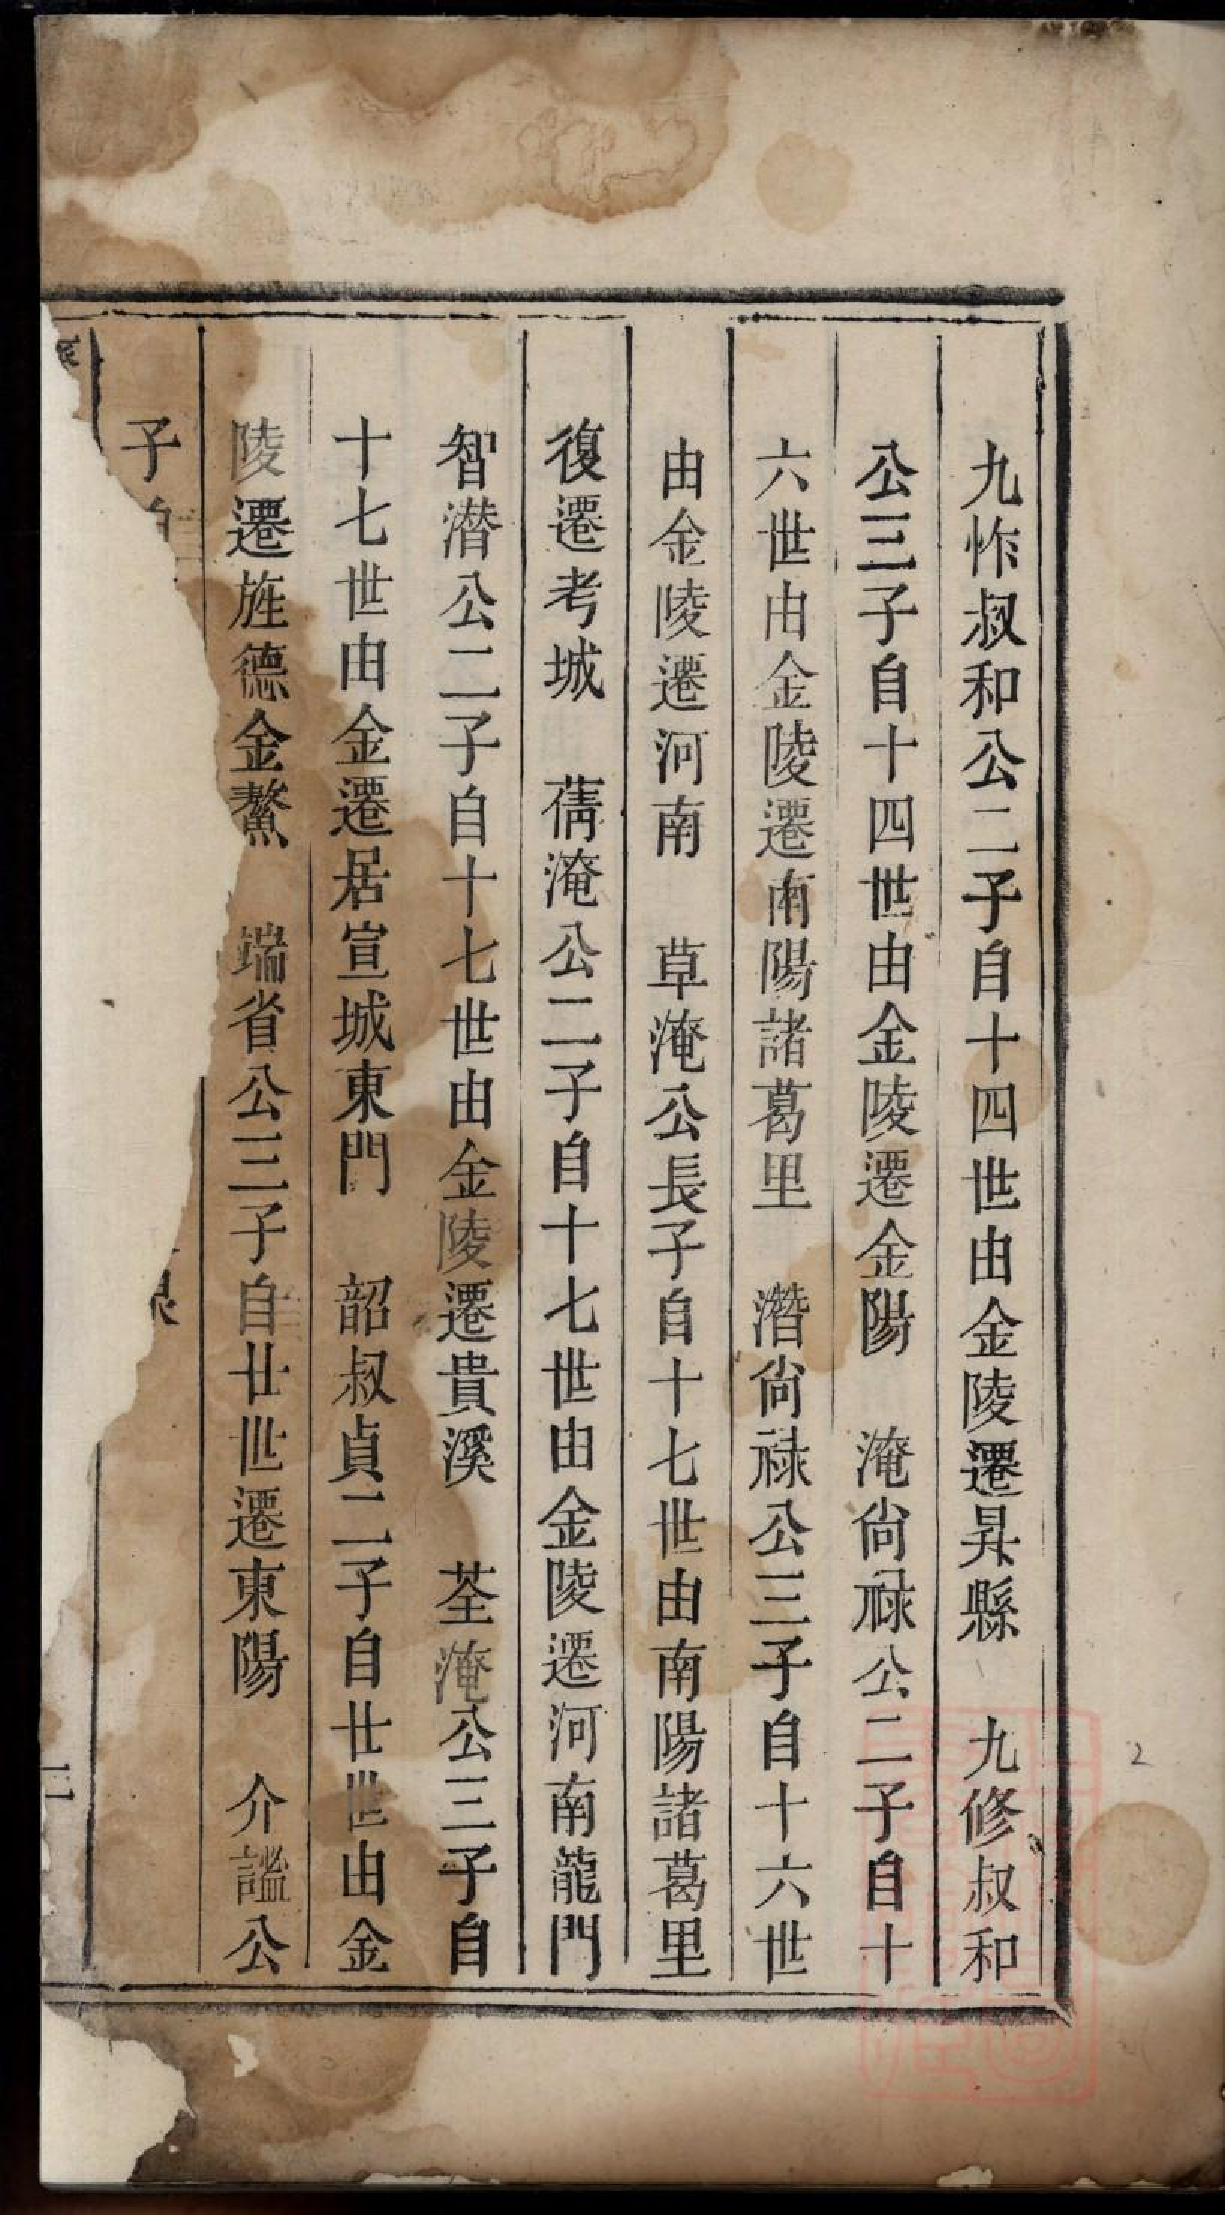 九怍叔和公二子自十四世由金陵遷昇縣　九修叔和
公三子自十四世由金陵遷金陽　淹尙祿公二子自十
六世由金陵遷南陽諸葛里　潛尙祿公三子自十六世
由金陵遷河南　草淹公長子自十七世由南陽諸葛里
復遷考城　蒨淹公二子自十七世由金陵遷河南龍門
智潛公二子自十七世由金陵遷貴溪　荃淹公三子自
十七世由金遷居宣城東門　韶叔貞二子自廿世由金
陵遷旌德金鰲　端省公三子自廿世遷東陽　介謐公
子自